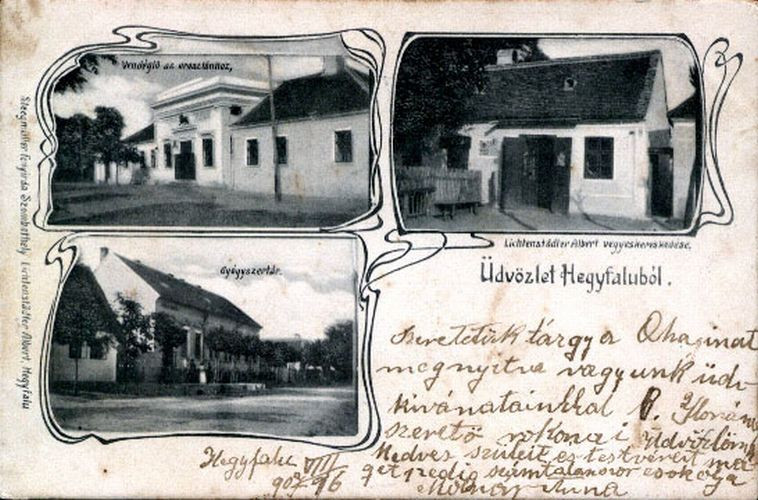 Vendéglő az oroszlánhoz,
Lichtenstädter Albert vegyeskereskedése.
Gyógyszertár.
Üdvözlet Hegyfaluból.
Stegmüller fényirda Szombathely Lichtenstädter Albert, Hegyfalu
Szeretetük tárgya
megnyitva vagyunk üdv
kivánatainkkal
szerető rokonai üdvözlöm
Kedves szüleit és testvéreit ma
get pedig számtalanszor csokolja
Molnár Anna
Hegyfalu VIII
907